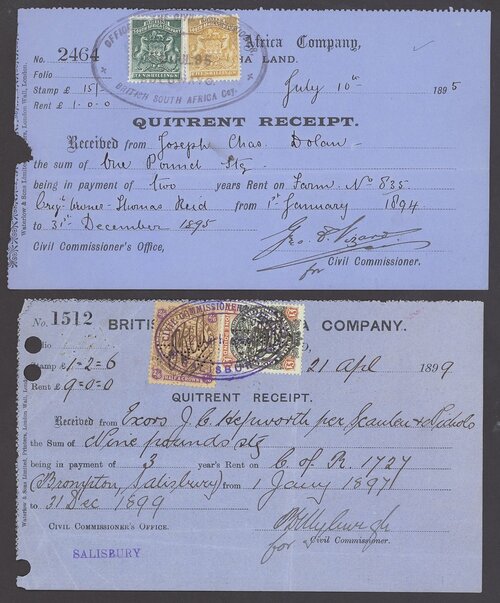 Africa Company,
No. 2464 HA LAND.
Folio
Stamp £ 15/ July 10th 1895
Rent £ 1.0.0
QUITRENT RECEIPT.
Received from Joseph Chas. Dolan
the sum of One Pound Stg
being in payment of two years Rent on Farm No 835
Orig. Owner - Thomas Reid from 1st January 1894
to 31st December 1895
Civil Commissioner's Office,
for Civil Commissioner.
Waterlow & Sons Limited, Printers, London Wall, London.
BRITISH SOUTH AFRICA Coy.
No. 1512 BRITI A COMPANY.
Folio
Stamp £ 1-2-6 21 Apl 1899
Rent £ 9-0-0
QUITRENT RECEIPT.
Received from Exors J. C. Hepworth per Scanlen & Nichols
the Sum of Nine pounds stg
being in payment of 3 year's Rent on C. of R. 1727
(Brompton, Salisbury) from 1 Jany 1897
to 31 Dec 1899
CIVIL COMMISSIONER'S OFFICE.
for Civil Commissioner.
SALISBURY
Waterlow & Sons Limited, Printers, London Wall, London.